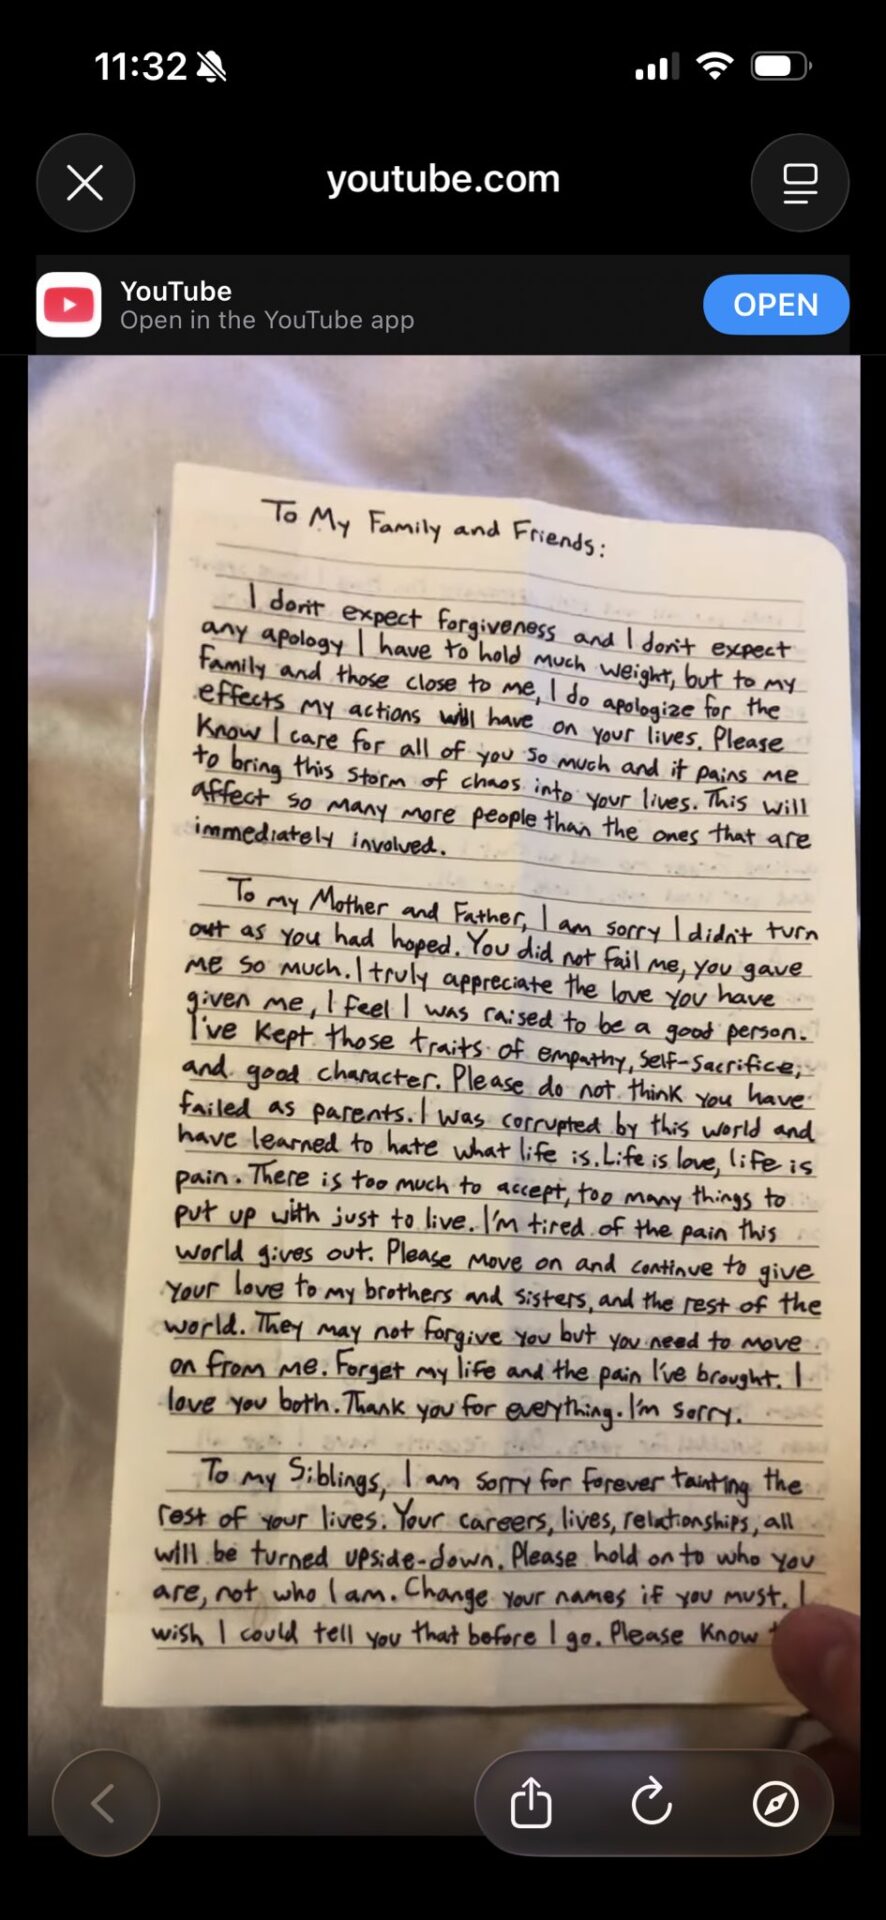 11:32
youtube.com
YouTube
Open in the YouTube app
OPEN
To My Family and Friends:
I don't expect forgiveness and I don't expect
any apology I have to hold much weight, but to my
family and those close to me, I do apologize for the
effects my actions will have on your lives. Please
Know I care for all of you so much and it pains me
to bring this storm of chaos into your lives. This will
affect so many more people than the ones that are
immediately involved.
To my Mother and Father, I am sorry I didn't turn
out as you had hoped. You did not fail me, you gave
me so much. I truly appreciate the love you have
given me, I feel I was raised to be a good person.
I've kept those traits of empathy, self-sacrifice,
and good character. Please do not think you have
failed as parents. I was corrupted by this world and
have learned to hate what life is. Life is love, life is
pain. There is too much to accept, too many things to
put up with just to live. I'm tired of the pain this
world gives out. Please move on and continue to give
your love to my brothers and sisters, and the rest of the
world. They may not forgive you but you need to move
on from me. Forget my life and the pain I've brought. I
love you both. Thank you for everything. I'm sorry.
To my Siblings, I am sorry for forever tainting the
rest of your lives. Your careers, lives, relationships, all
will be turned upside-down. Please hold on to who you
are, not who I am. Change your names if you must. I
wish I could tell you that before I go. Please Know